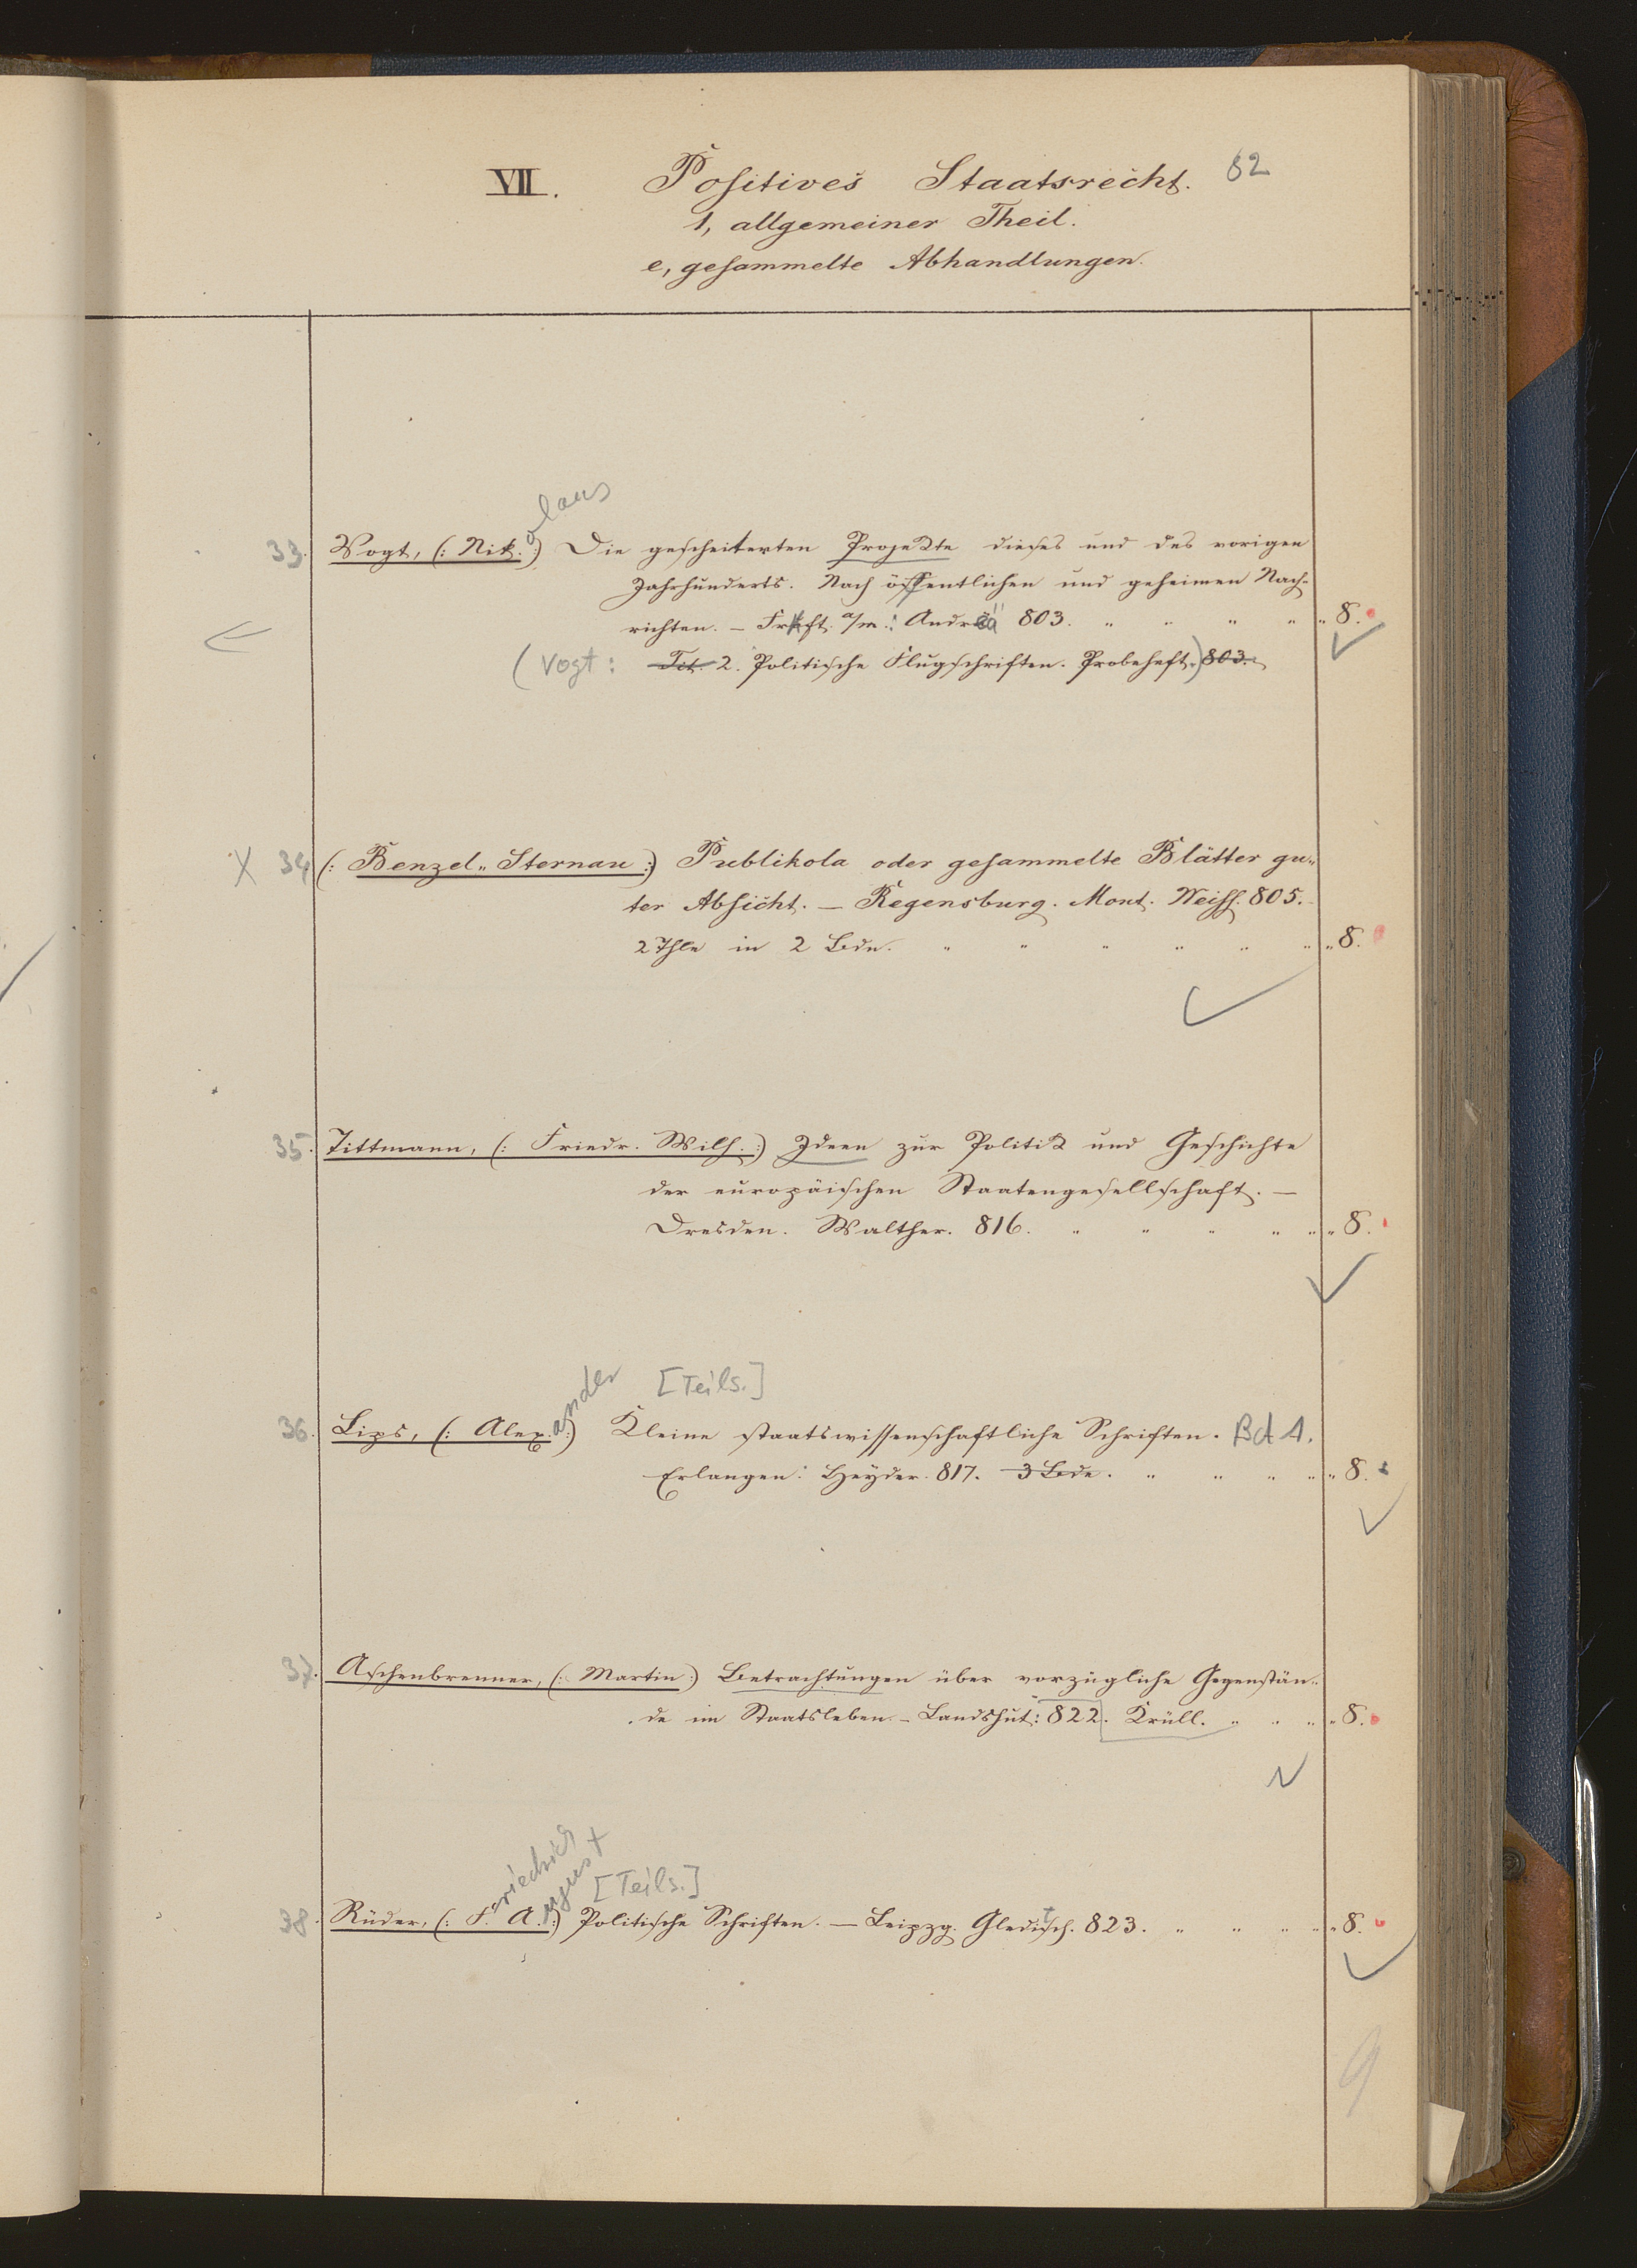 VII. Positives Staatsrecht. 82
1, allgemeiner Theil.
e, gesammelte Abhandlungen.
33. Vogt, (: Nik.olaus :) Die gescheiterten Projekte dieses und des vorigen
Jahrhunderts. Nach öffentlichen und geheimen Nach-
richten. – Frkft. a/m.: Andreä 803. „ „ „ „ „ 8.
(Vogt: Tit. 2. Politische Flugschriften. Probeheft.) 803.
X 34 (: Benzel„ Sternau :) Publikola oder gesammelte Blätter gu„
ter Absicht. – Regensburg. Mont. Weiss. 805.
2 Thle in 2 Bdn. „ „ „ „ „ „ „ 8.
35. Tittmann, (: Friedr. Wilh. :) Ideen zur Politik und Geschichte
der europäischen Staatengesellschaft. –
Dresden. Walther. 816. „ „ „ „ „ „ 8.
[Teils.]
36. Lips, (: Alex.ander :) Kleine staatswissenschaftliche Schriften. Bd 1.
Erlangen: Heyder. 817. 3 Bde. „ „ „ „ „ 8.
37. Aschenbrenner, (: Martin :) Betrachtungen über vorzügliche Gegenstän„
de im Staatsleben. – Landshut: 822. Krüll. „ „ „ „ 8.
[Teils.]
38. Rüder, (: F.riedrich A.ugust :) Politische Schriften. – Leipzg. Gleditsch. 823. „ „ „ „ „ 8.
9